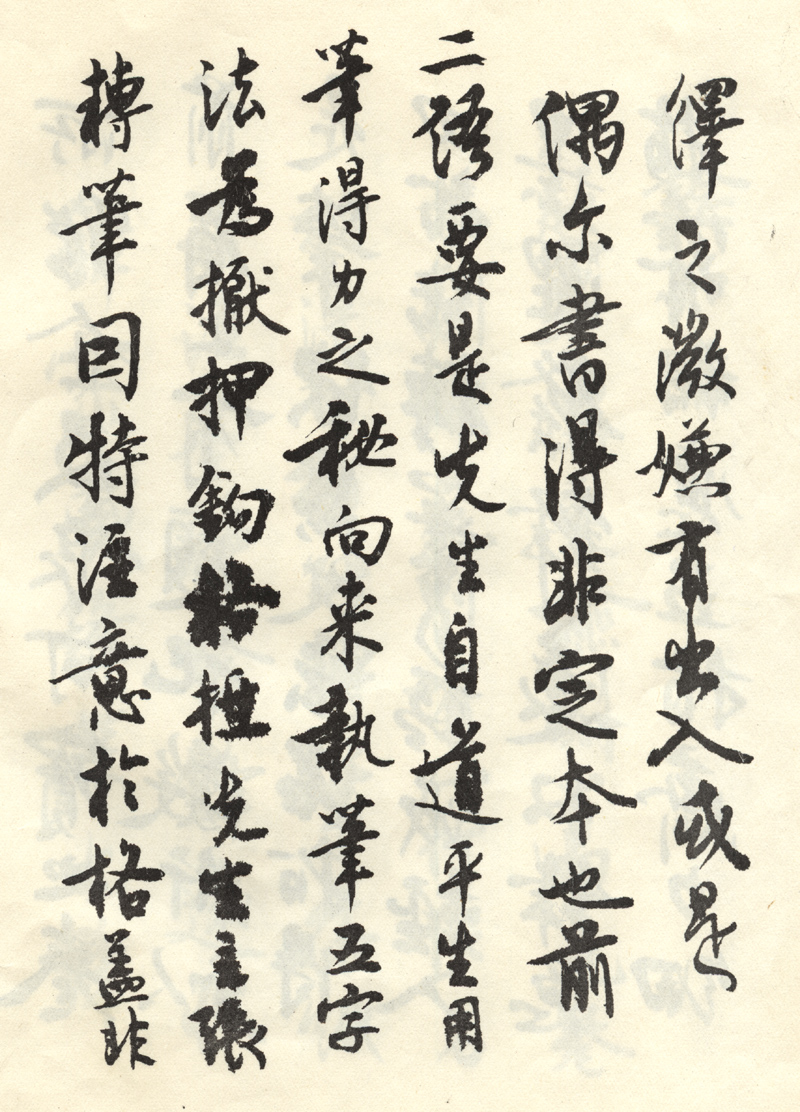 繹之微嫌有出入或是
偶尔書得非定本也前
二語要是先生自道平生用
筆得力之秘向来執筆五字
法為擫押鈎格抵先生主張
轉筆因特注意於格蓋非